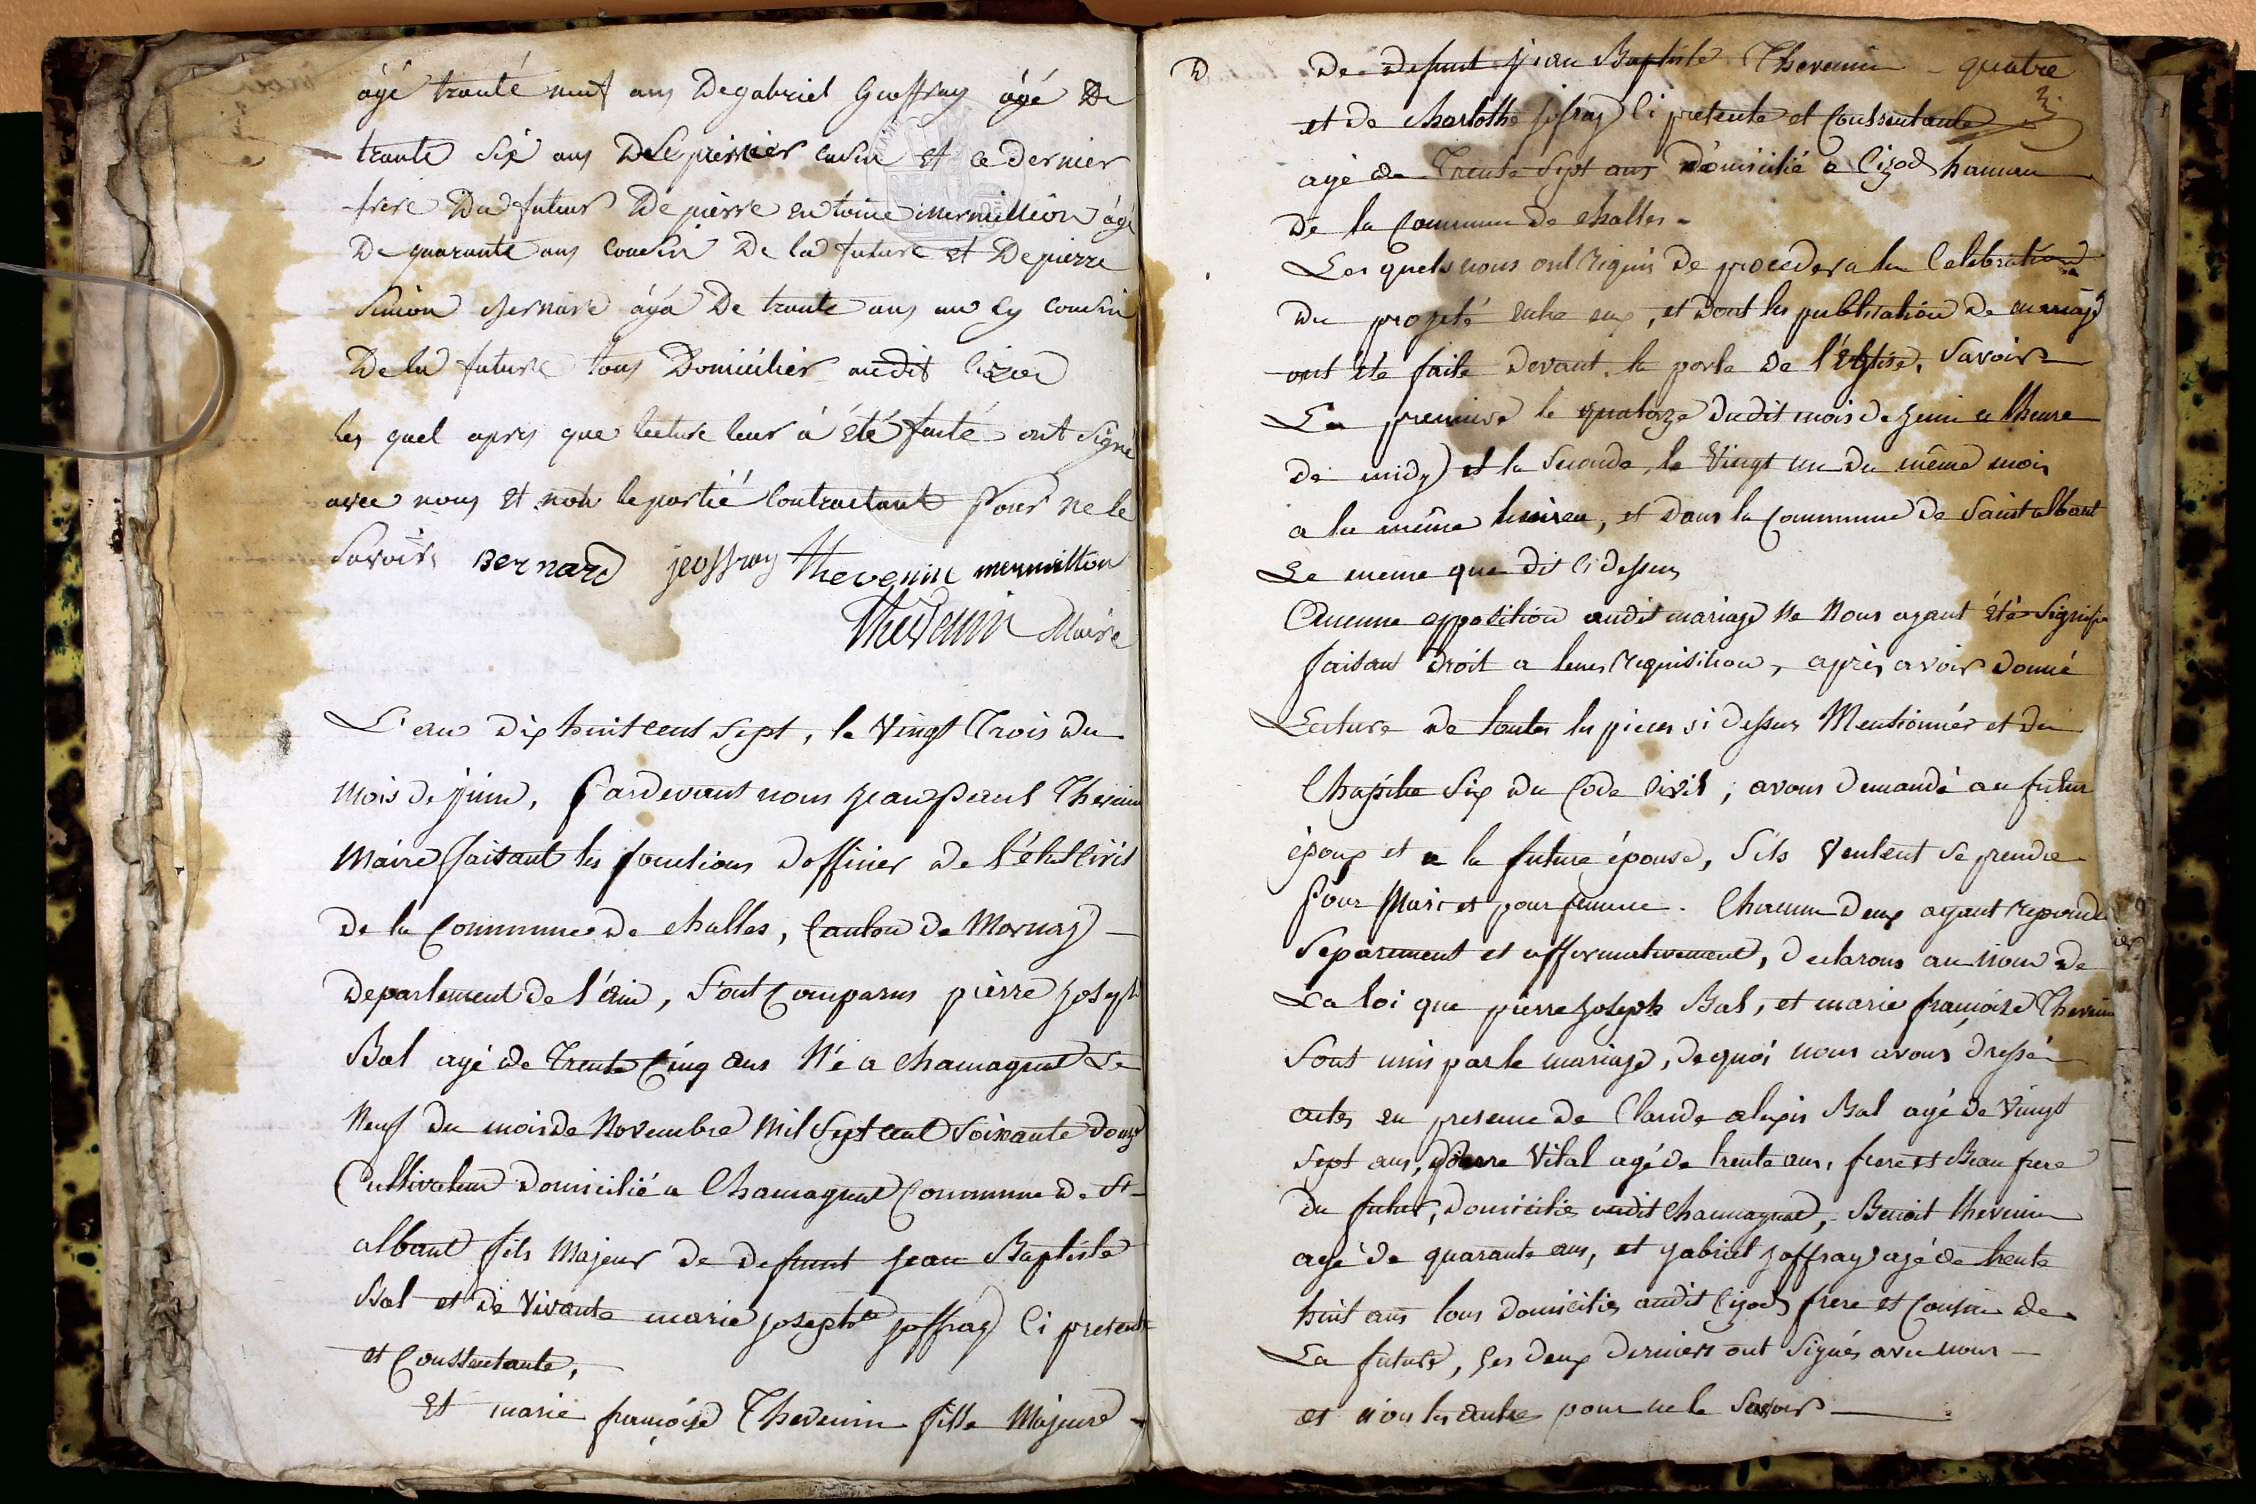 âgé tranté neuf ans De gabriel Geoffray âgé De
trante six ans De Le premier cusin et ce dernier
frere Du futeur De pierre entoine mermillion âgé
De quarante ans cousin De la future et De pierre
Simion Bernard âgé De trante ans au cy cousin
De la future tous Domicilier audit Cizod
les quel aprys que lecture leur à été faité ont signé
avec nous et non le partié Contractant pour ne le
savoir Bernard jeoffray thevenin mermillon
thevenin Maire
L'an dix huit cent sept, le Vingt Trois du
mois de juin, Pardevant nous jean Paul Thevenin
Maire faisant les fonctions d'officier de l'état civil
de la Commune de challes, Canton de Mornay
departement de l'ain, sont Comparus pierre joseph
Bal agé de Trente Cinq ans Né a Chamagnat Le
Neuf du mois de Novembre mil sept cent soixante douze
Cultivateur domicilié a Chamagnat Commune de St
albant fils majeur de defunt jean Baptiste
Bal et de Vivante marie josephte joffray Ci presente
et Conssentante,
Et marie françoise Thevenin fille Majeure
De defunt jean Baptiste Thevenin quatre
et de charlothe jofray Ci presente et Conssentante
agé de Trente Sept ans domicilié a Cizod hamau
de la Commune de challes
Les quels nous ont requis de proceder a la Celebration
du projeté entre eux, et dont les publication de mariage
ont été faite devant la porte de l'église, Savoir
La premiere le quatorze dudit mois de juin a lheure
de midy et la seconde, le Vingt un du même mois
a la même heure, et dans la Commune de Saint albant
Le meme que dit ci dessus
Aucune opposition audit mariage ne Nous ayant été signifié
faisant droit a leur requisition, après avoir donné
Lecture de toutes les pieces si dessus Mentionnés et du
Chapitre Six du Code Civil, avons demandé au futur
époux et a la future épouse, s'ils Veulent se prendre
Pour Mari et pour femme. Chacun deux ayant repondu
Séparement et affirmativement, declarons au nom de
La loi que pierre joseph Bal, et marie françoise Thevenin
Sont unis par le mariage, de quoi nous avons dressé
actes en presence de Claude alexis Bal agé de Vingt
Sept ans, pierre Vital agé de trente ans, frere et Beau frere
du futur, domiciliés audit Chamagnat, Benoit thevenin
agé de quarante ans, et gabriel joffray agé de trente
huit ans tous domiciliés audit Cizod frere et Cousin de
La future, les deux derniers ont signés avec nous
et non les autres pour ne le Savoir